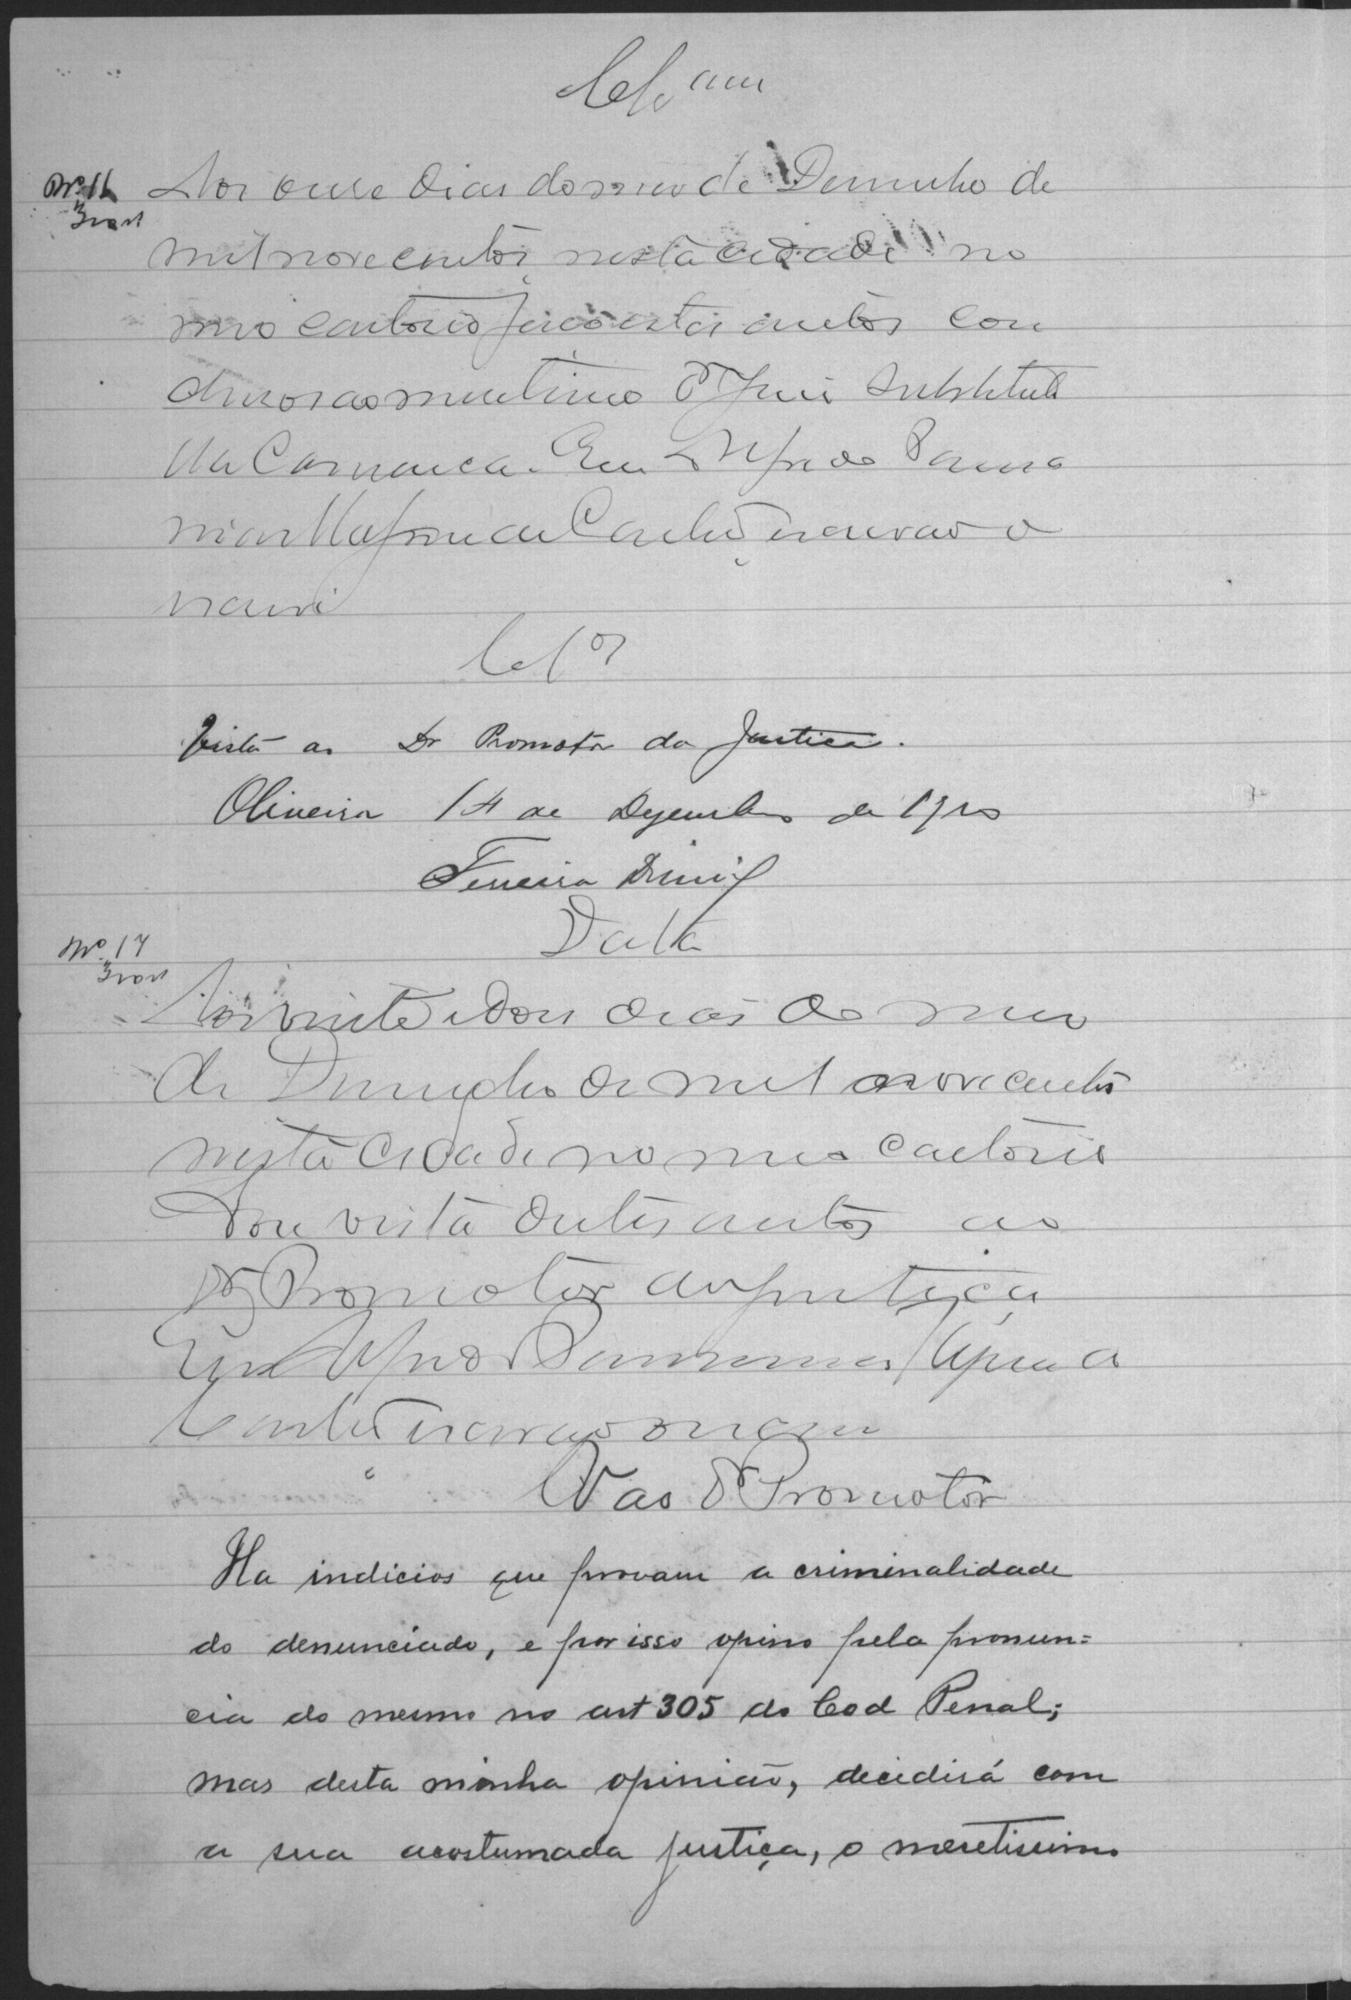 Clsam
Nº 16
Aos onze dias do mes de Dezembro de
mil novecentos, nesta cidade no
meo cartorio faço estes autos con
clusos ao meretissimo Dr Juis Substituto
da Comarca. Eu Alfredo
escrivão o
escrevi
Clos
Vista ao Dr Promotor da Justiça.
Oliveira 14 de Dezembro de 1900
Ferreira Diniz
Data
Nº 17
Aos vinte e dous dias do mes
de Dezembro de mil novecentos
nesta cidade no meo cartorio
dou vista destes autos ao
Dr Promotor da Justiça
Eu Alfredo
escrivão
Vao Dr Promotor
Ha indicios que provam a criminalidade
do denunciado, e por isso opino pela pronun=
cia do mesmo no art 305 do Cod Penal;
mas desta minha opinião, decidirá com
a sua acostumada justiça, o meretissimo